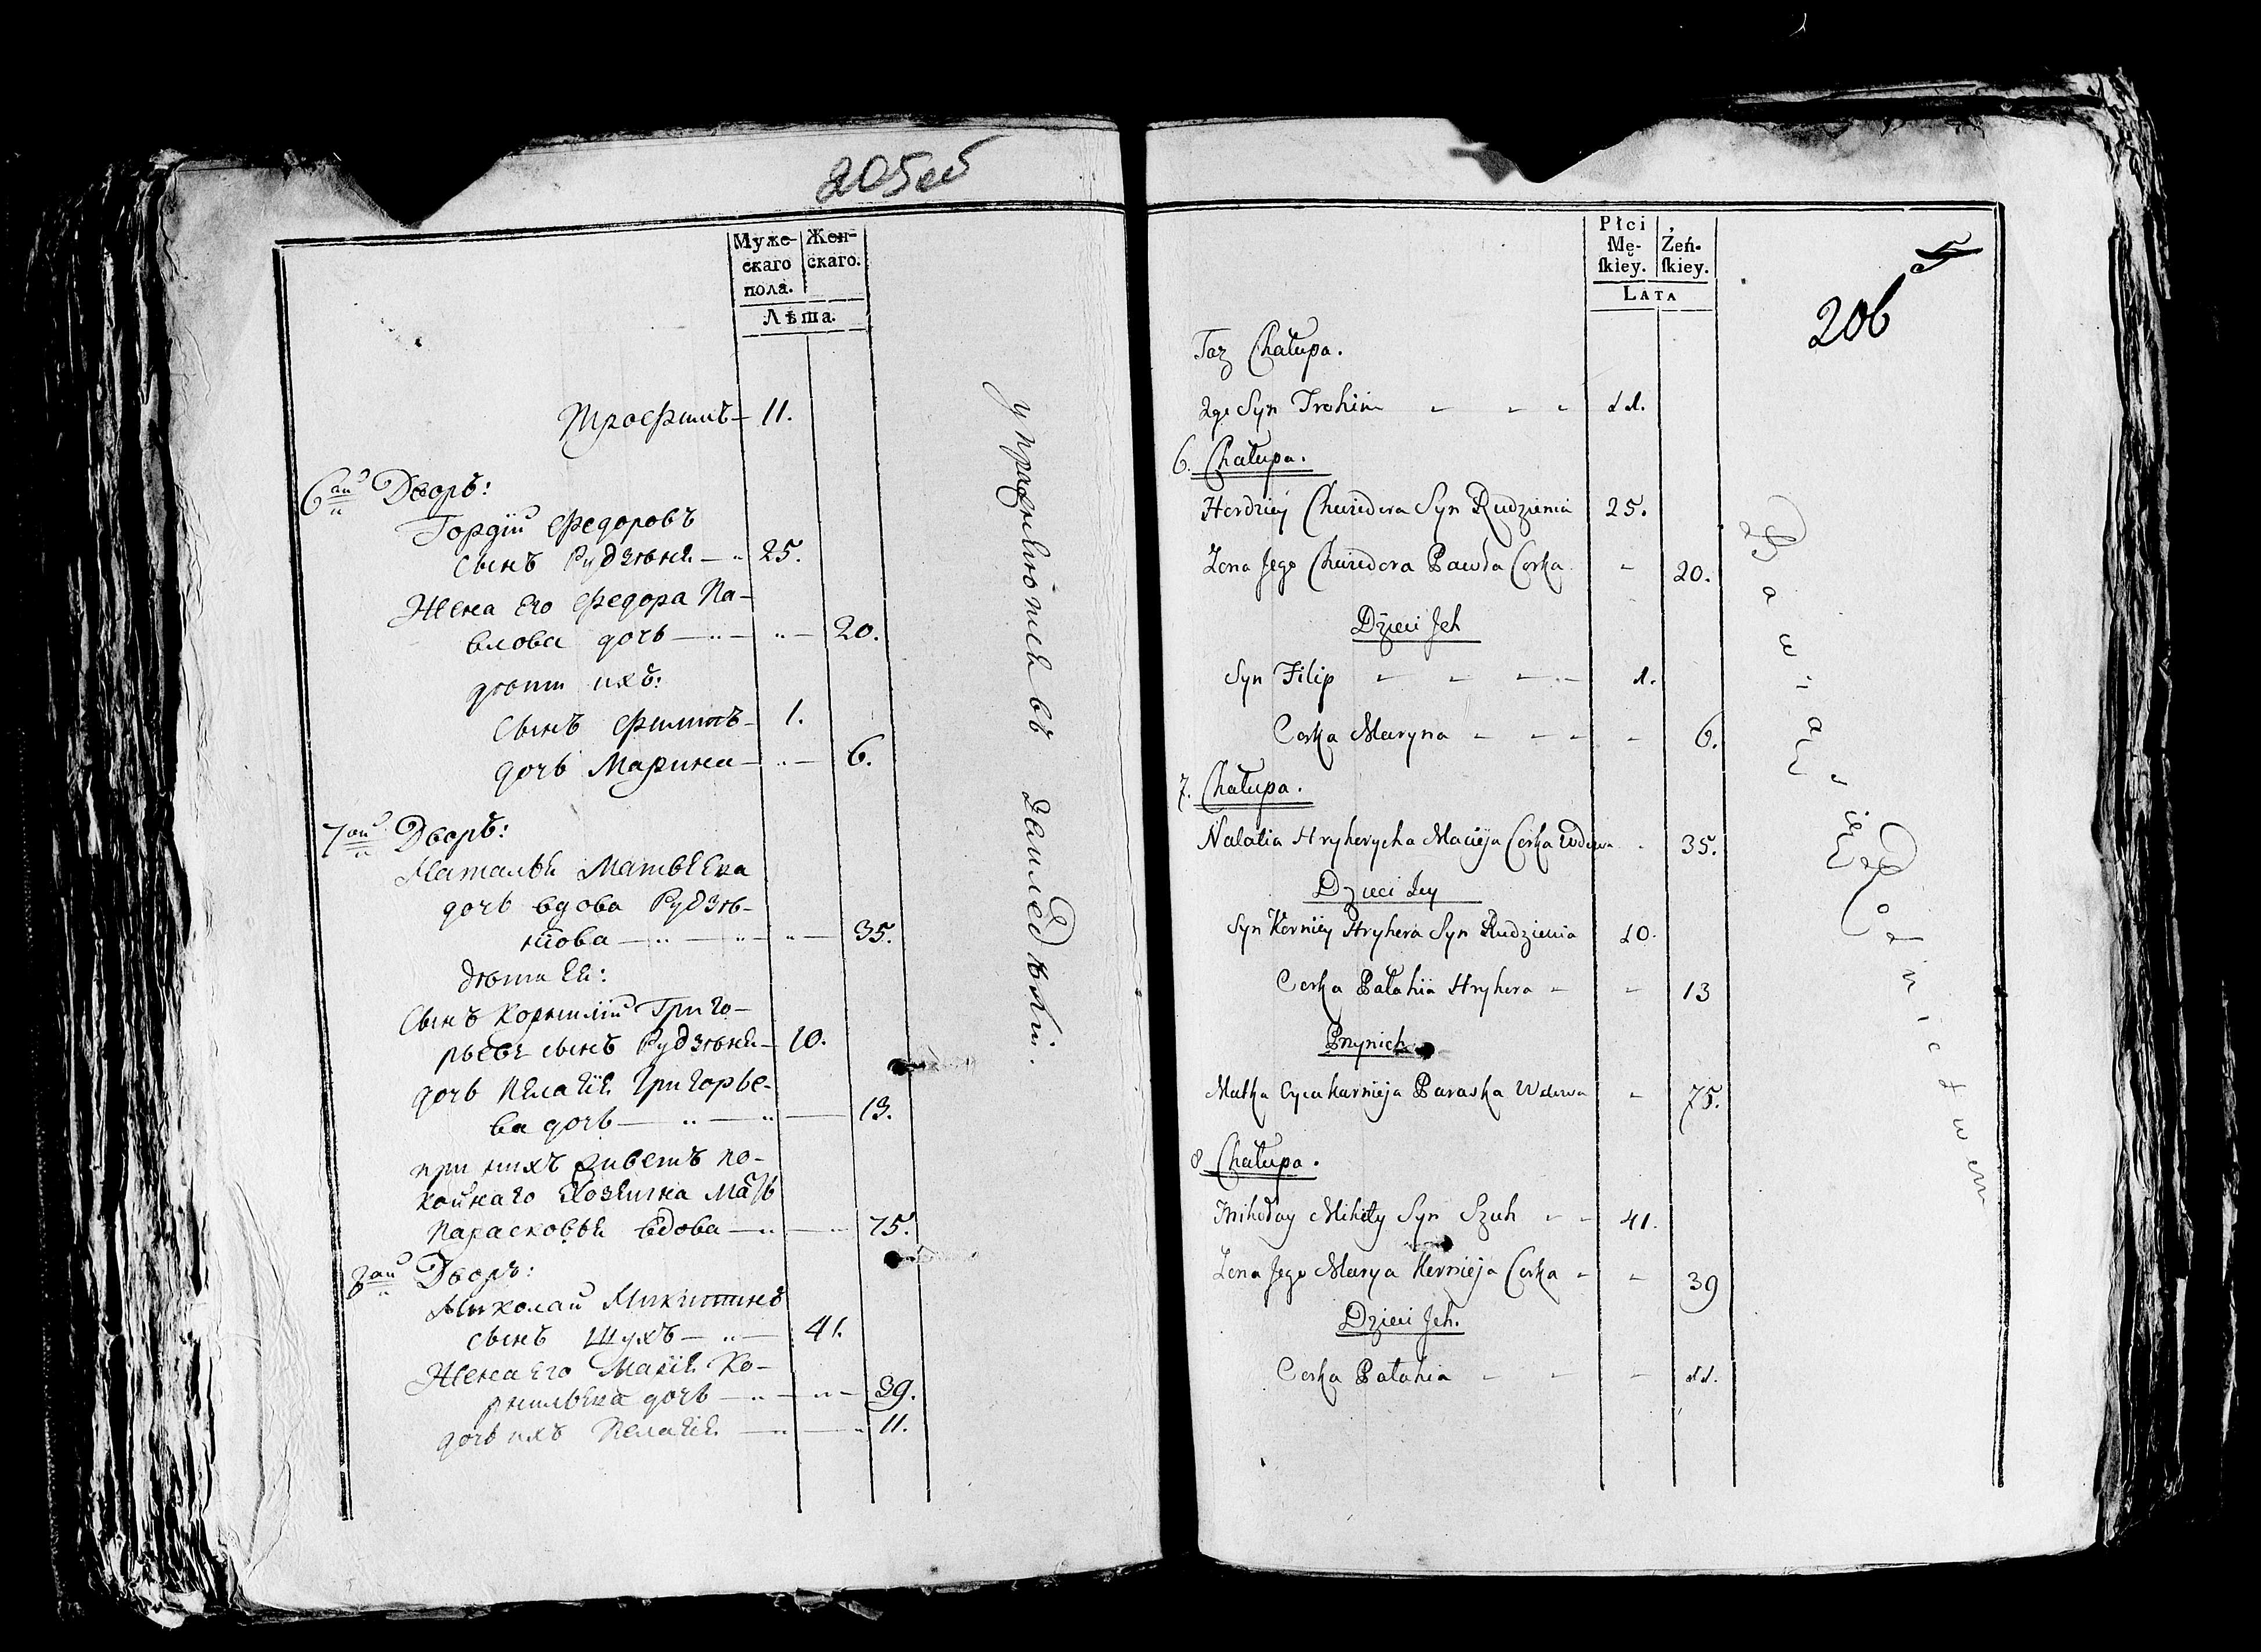 205об
Муже- Жен-
скаго скаго.
пола.
Лѣта.
Трофимъ — 11.
6ай Дворъ:
Гордій Федоровъ
сынъ Рудзѣня — 25.
Жена его Федора Па-
влова дочь — 20.
дѣти ихъ:
сынъ Филипъ — 1.
дочь Марина — 6.
7ой Дворъ:
Наталья Матвѣева
дочь вдова Рудзѣ-
нiова — 35.
дѣти ея:
Сынъ Корнилій Григо-
рьевъ сынъ Рудзѣня — 10.
дочь Пелагія Григорье-
ва дочь — 13.
при нихъ живетъ по-
койнаго хозяина мать
Парасковья вдова — 75.
8ай Дворъ:
Миколай Микитинъ
сынъ Шухъ — 41.
Жена его Марія Ко-
рнильева дочь — 39.
дочь ихъ Пелагія — 11.
упражняются въ земледѣліи.
Płci
Mę- Żeń-
ſkiey. ſkiey.
LATA
5
206
Taz Chałupa.
2gi Syn Trohim - - - 11.
6. Chałupa.
Hordziey Chwiedora Syn Rudzienia 25.
Zona Jego Chwiedora Pawła Corka - 20.
Dzieci Jch
Syn Filip - - - - 1.
Corka Maryna - - - - 6.
7. Chałupa.
Natalia Hryhorycha Macieja Corka Wdowa - 35.
Dzieci Jey
Syn Korniey Hryhora Syn Rudzienia 10.
Corka Pałahia Hryhora - - 13
Przynich
Matka Oyca Karnieja Paraska Wdowa - 75.
8 Chałupa.
Mikołay Mikity Syn Szuh - - 41.
Zona Jego Marya Kornieja Corka - - 39
Dzieci Jch.
Corka Pałahia - - - 11.
Bawią się Rolnictwem